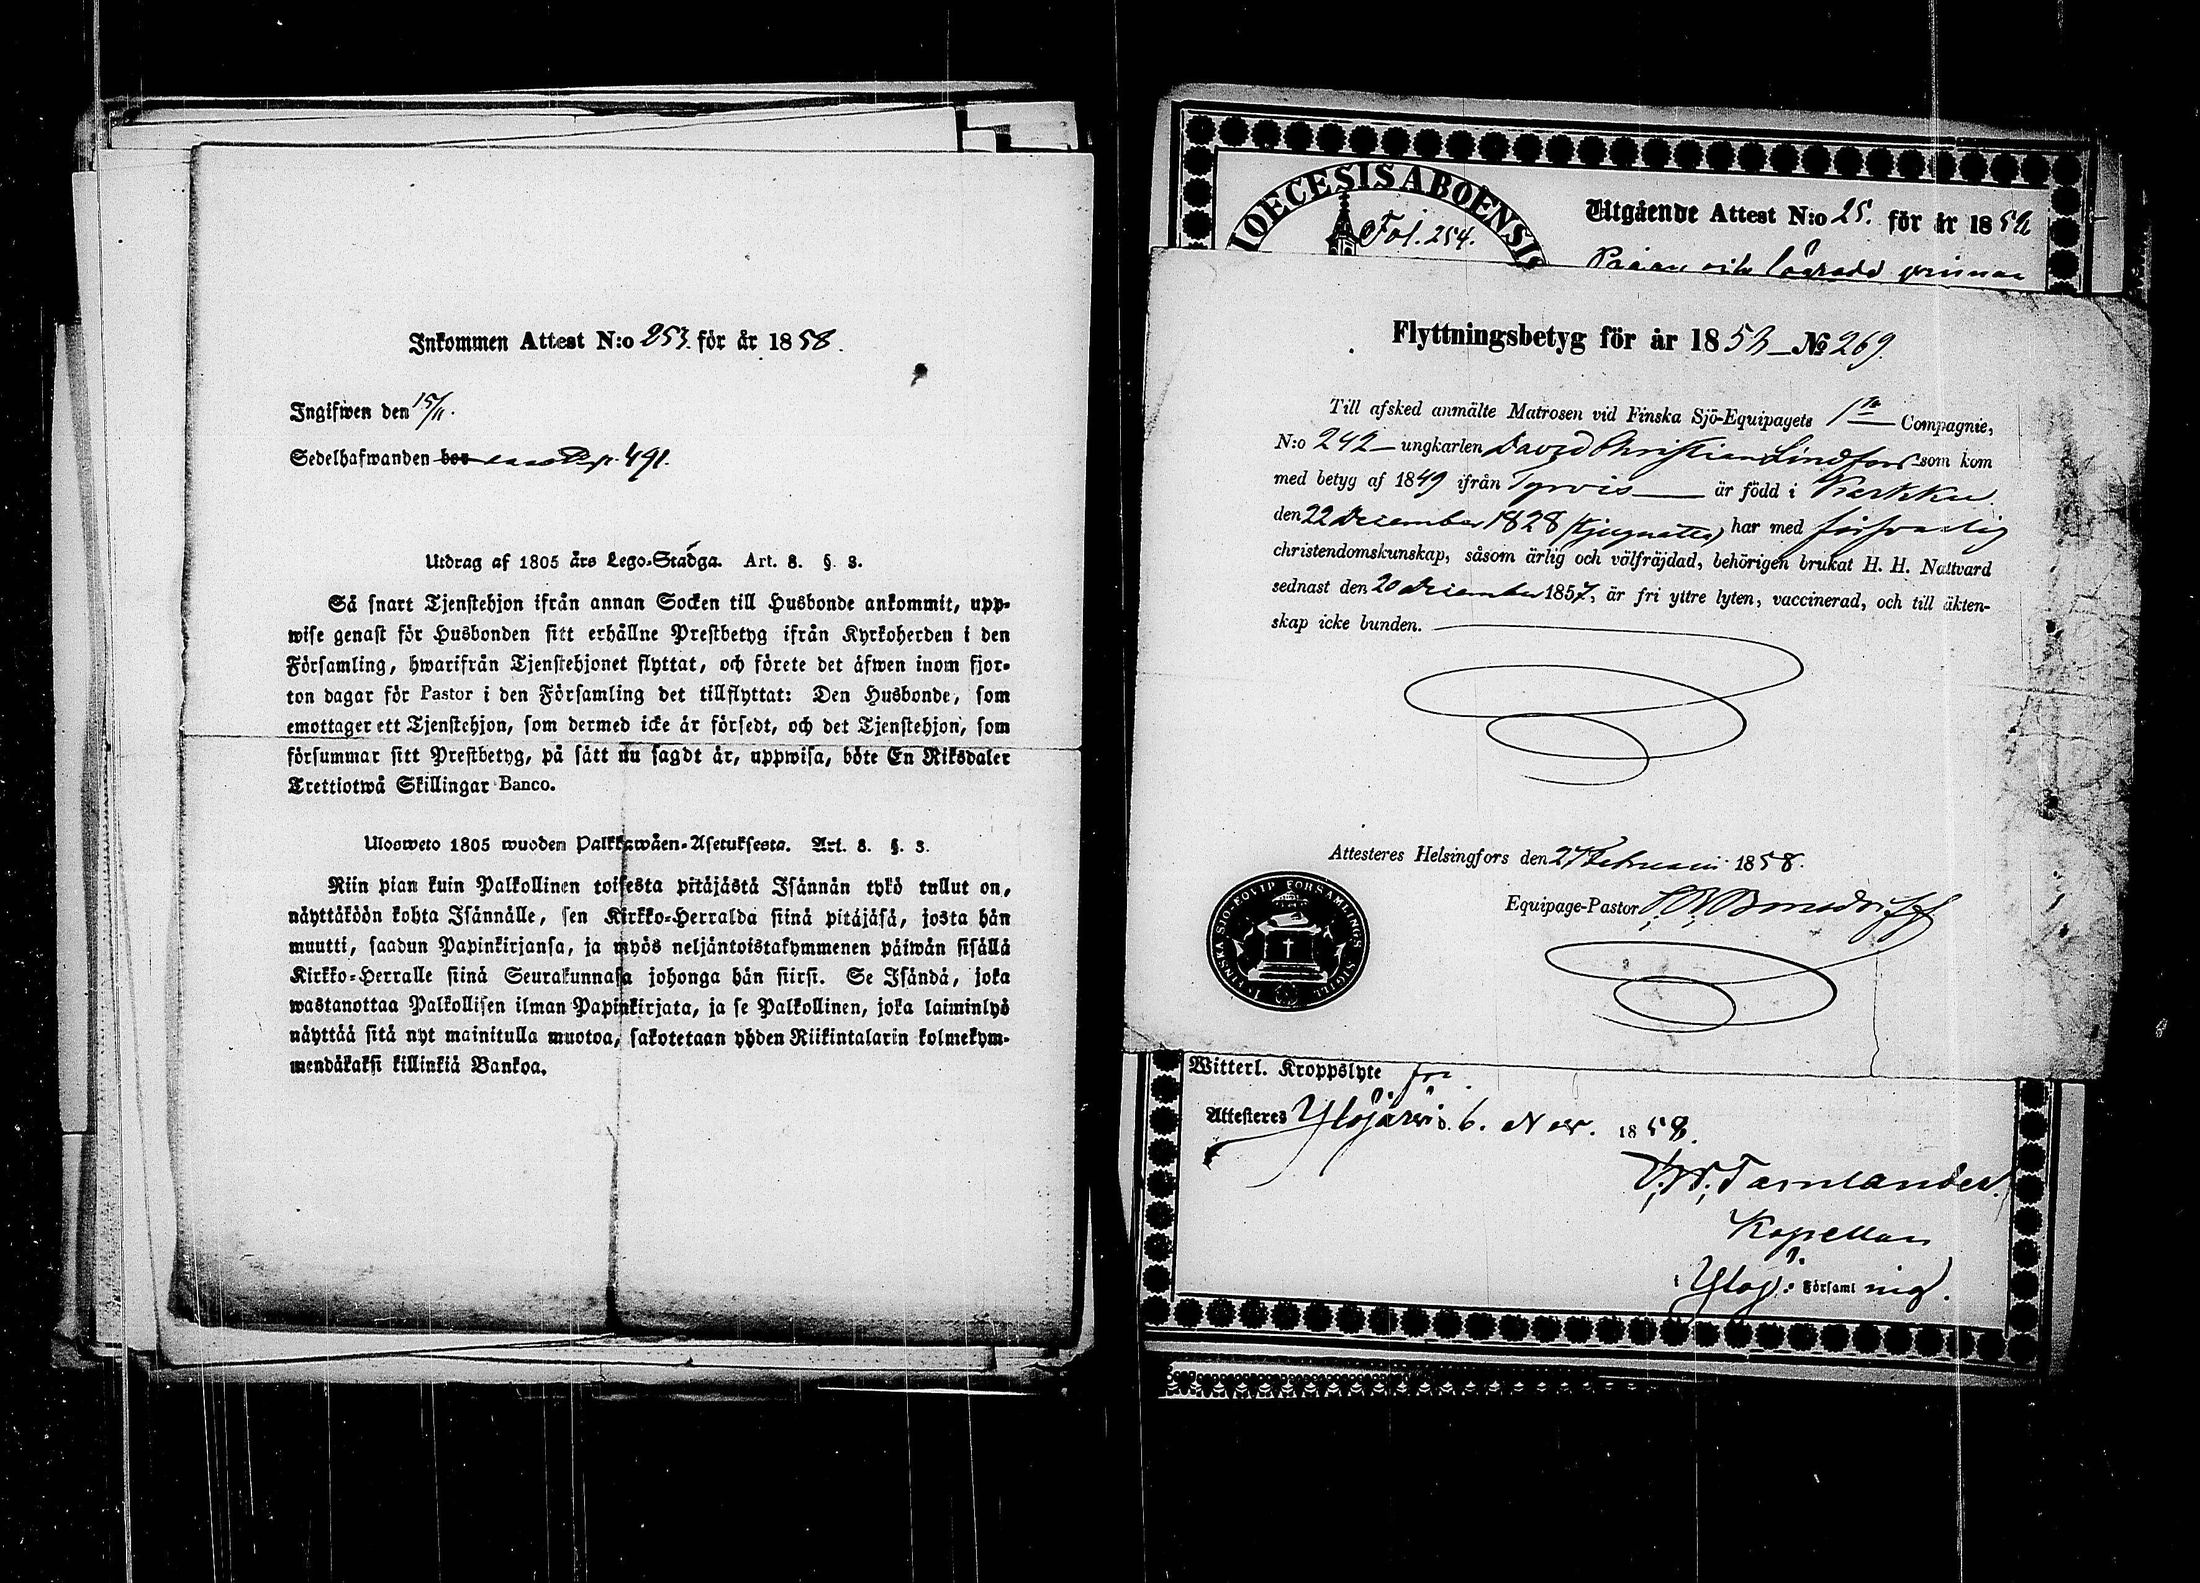 Inkommen Attest N:o 253. för år 1858.
Ingifwen den 15/11.
Sedelhafwanden bor 491.
Utdrag af 1805 års Lego-Stadga. Art. 8. §. 3.
Så snart Tjenstehjon ifrån annan Socken till Husbonde ankommit, upp-
wise genast för Husbonden sitt erhållne Prestbetyg ifrån Kyrkoherden i den
Församling, hwarifrån Tjenstehjonet flyttat, och förete det äfwen inom fjor-
ton dagar för Pastor i den Församling det tillflyttat: Den Husbonde, som
emottager ett Tjenstehjon, som dermed icke är försedt, och det Tjenstehjon, som
försummar sitt Prestbetyg, på sätt nu sagdt är, uppwisa, böte En Riksdaler
Trettiotwå Skillingar Banco.
Ulosweto 1805 wuoden Palkkawäen-Asetuksesta. Art. 8. §. 3.
Niin pian kuin Palkollinen toisesta pitäjästä Isännän tykö tullut on,
näyttäköön kohta Isännälle, sen Kirkko-Herralda siinä pitäjäsä, josta hän
muutti, saadun Papinkirjansa, ja myös neljäntoistakymmenen päiwän sisällä
Kirkko-Herralle siinä Seurakunnasa johonga hän siirsi. Se Isändä, joka
wastanottaa Palkollisen ilman Papinkirjata, ja se Palkollinen, joka laiminlyö
näyttää sitä nyt mainitulla muotoa, sakotetaan yhden Riikintalarin kolmekym-
mendäkaksi killinkiä Bankoa.
DIOECESIS ABOENSIS
Fol. 254.
Utgående Attest N:o 25. för år 1858
Pigan
Flyttningsbetyg för år 1858 — № 269.
Till afsked anmälte Matrosen vid Finska Sjö-Equipagets 1ta Compagnie,
N:o 242 — ungkarlen David Christian Lindfors som kom
med betyg af 1849 ifrån Tyrvis — är född i Karkku
den 22 December 1828 har med försvarlig
christendomskunskap, såsom ärlig och välfräjdad, behörigen brukat H. H. Nattvard
sednast den 20 December 1857, är fri yttre lyten, vaccinerad, och till äkten-
skap icke bunden.
Attesteres Helsingfors den 27 Februari 1858.
Equipage-Pastor
FINSKA SJÖ-EQVIP FÖRSAMLINGS SIGILL
Witterl. Kroppslyte fri.
Attesteres Ylöjärwi d. 6. Nov. 1858.
Kapellan
i Ylöj: Församl ing.